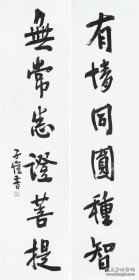 有情同圓種智
無常悉證菩提
子愷書